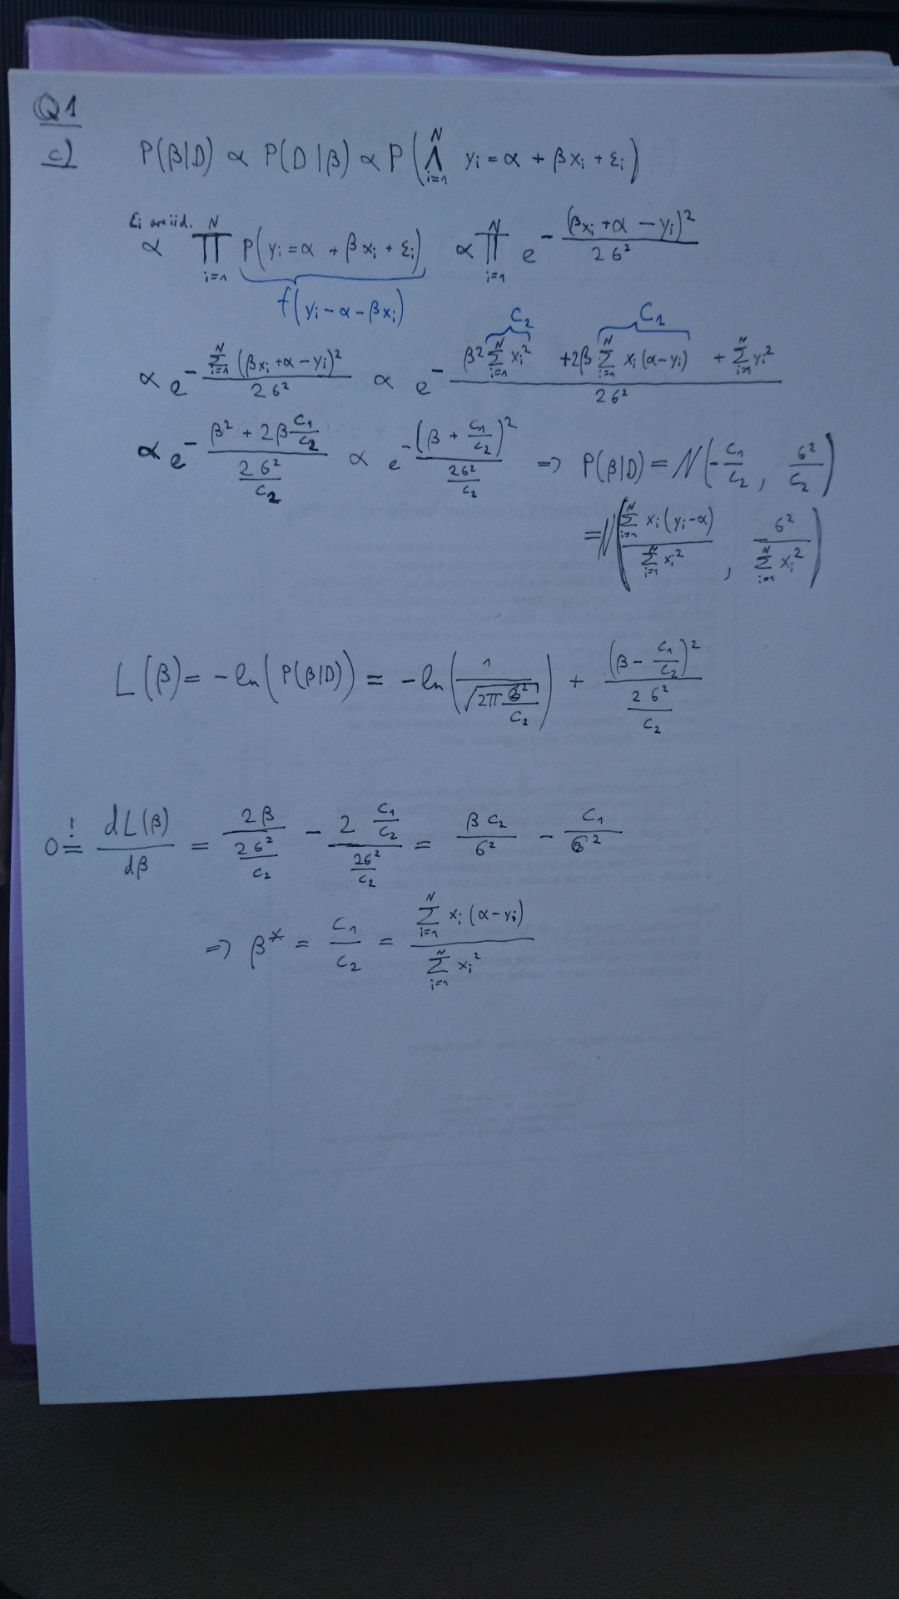 Q1
c) P(β|D) ∝ P(D|β) ∝ P(⋀_{i=1}^{N} y_i = α + βx_i + ε_i)
ε_i are iid.
∝ ∏_{i=1}^{N} P(y_i = α + βx_i + ε_i) ∝ ∏_{i=1}^{N} e^{-(βx_i + α − y_i)^2 / 2σ^2}
f(y_i − α − βx_i)
C_2 C_1
∝ e^{-∑_{i=1}^{N} (βx_i + α − y_i)^2 / 2σ^2} ∝ e^{-(β^2 ∑_{i=1}^{N} x_i^2 + 2β ∑_{i=1}^{N} x_i(α − y_i) + ∑_{i=1}^{N} y_i^2) / 2σ^2}
∝ e^{-(β^2 + 2β C_1/C_2) / (2σ^2/C_2)} ∝ e^{-(β + C_1/C_2)^2 / (2σ^2/C_2)} ⇒ P(β|D) = N(−C_1/C_2, σ^2/C_2)
= N(∑_{i=1}^{N} x_i(y_i − α) / ∑_{i=1}^{N} x_i^2, σ^2 / ∑_{i=1}^{N} x_i^2)
L(β) = −ln(P(β|D)) = −ln(1 / √(2π σ^2/C_2)) + (β − C_1/C_2)^2 / (2σ^2/C_2)
0 =! dL(β)/dβ = 2β / (2σ^2/C_2) − 2 (C_1/C_2) / (2σ^2/C_2) = βC_2/σ^2 − C_1/σ^2
⇒ β* = C_1/C_2 = ∑_{i=1}^{N} x_i(α − y_i) / ∑_{i=1}^{N} x_i^2